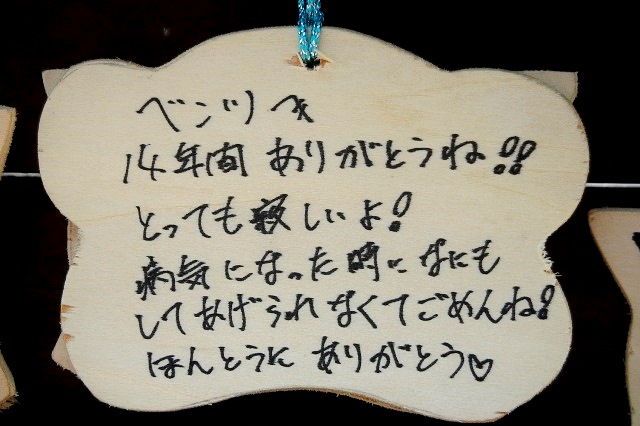 ベンツ へ
14年間 ありがとうね!!
とっても寂しいよ!
病気になった時になにも
してあげられなくてごめんね!
ほんとうに ありがとう♡